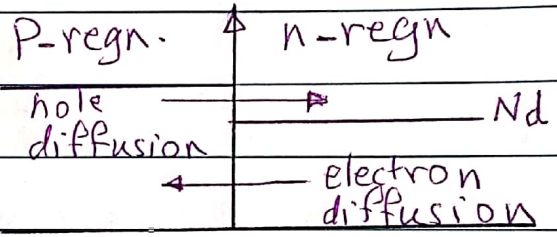 P-regn.
n-regn
hole
diffusion
Nd
electron
diffusion